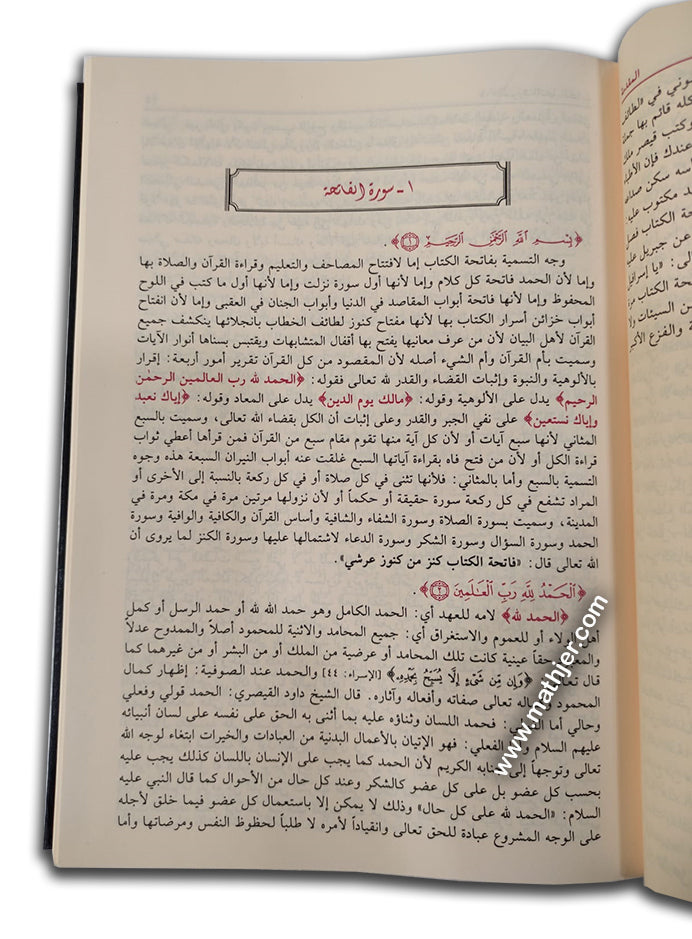 ١ - سورة الفاتحة
﴿بِسْمِ اللَّهِ الرَّحْمَٰنِ الرَّحِيمِ ﴿١﴾﴾.
وجه التسمية بفاتحة الكتاب إما لافتتاح المصاحف والتعليم وقراءة القرآن والصلاة بها
وإما لأن الحمد فاتحة كل كلام وإما لأنها أول سورة نزلت وإما لأنها أول ما كتب في اللوح
المحفوظ وإما لأنها فاتحة أبواب المقاصد في الدنيا وأبواب الجنان في العقبى وإما لأن انفتاح
أبواب خزائن أسرار الكتاب بها لأنها مفتاح كنوز لطائف الخطاب بانجلائها ينكشف جميع
القرآن لأهل البيان لأن من عرف معانيها يفتح بها أقفال المتشابهات ويقتبس بسناها أنوار الآيات
وسميت بأم القرآن وأم الشيء أصله لأن المقصود من كل القرآن تقرير أمور أربعة: إقرار
بالألوهية والنبوة وإثبات القضاء والقدر لله تعالى فقوله: ﴿الحمد لله رب العالمين الرحمٰن
الرحيم﴾ يدل على الألوهية وقوله: ﴿مالك يوم الدين﴾ يدل على المعاد وقوله: ﴿إياك نعبد
وإياك نستعين﴾ على نفي الجبر والقدر وعلى إثبات أن الكل بقضاء الله تعالى، وسميت بالسبع
المثاني لأنها سبع آيات أو لأن كل آية منها تقوم مقام سبع من القرآن فمن قرأها أعطي ثواب
قراءة الكل أو لأن من فتح فاه بقراءة آياتها السبع غلقت عنه أبواب النيران السبعة هذه وجوه
التسمية بالسبع وأما بالمثاني: فلأنها تثنى في كل صلاة أو في كل ركعة بالنسبة إلى الأخرى أو
المراد تشفع في كل ركعة سورة حقيقة أو حكماً أو لأن نزولها مرتين مرة في مكة ومرة في
المدينة، وسميت بسورة الصلاة وسورة الشفاء والشافية وأساس القرآن والكافية والوافية وسورة
الحمد وسورة السؤال وسورة الشكر وسورة الدعاء لاشتمالها عليها وسورة الكنز لما يروى أن
الله تعالى قال: «فاتحة الكتاب كنز من كنوز عرشي».
﴿الْحَمْدُ لِلَّهِ رَبِّ الْعَالَمِينَ ﴿٢﴾﴾.
﴿الحمد لله﴾ لامه للعهد أي: الحمد الكامل وهو حمد الله لله أو حمد الرسل أو كمل
أهل الولاء أو للعموم والاستغراق أي: جميع المحامد والاثنية للمحمود أصلاً والممدوح عدلاً
حقاً عينية كانت تلك المحامد أو عرضية من الملك أو من البشر أو من غيرهما كما
قال تعالى: ﴿وَإِن مِّن شَيْءٍ إِلَّا يُسَبِّحُ بِحَمْدِهِ﴾ [الإسراء: ٤٤] والحمد عند الصوفية: إظهار كمال
المحمود تعالى صفاته وأفعاله وآثاره. قال الشيخ داود القيصري: الحمد قولي وفعلي
وحالي أما فحمد اللسان وثناؤه عليه بما أثنى به الحق على نفسه على لسان أنبيائه
عليهم السلام الفعلي: فهو الإتيان بالأعمال البدنية من العبادات والخيرات ابتغاء لوجه الله
تعالى وتوجهاً إلى الكريم لأن الحمد كما يجب على الإنسان باللسان كذلك يجب عليه
بحسب كل عضو بل على كل عضو كالشكر وعند كل حال من الأحوال كما قال النبي عليه
السلام: «الحمد لله على كل حال» وذلك لا يمكن إلا باستعمال كل عضو فيما خلق لأجله
على الوجه المشروع عبادة للحق تعالى وانقياداً لأمره لا طلباً لحظوظ النفس ومرضاتها وأما
www.mathjer.com